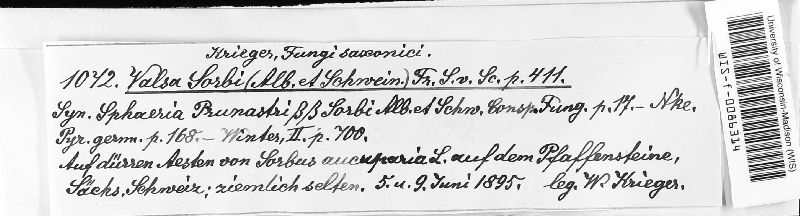 Krieger, Fungi saxonici.
1042. Valsa Sorbi (Alb. et Schwein.) Fr. S. v. Sc. p. 411.
Syn. Sphaeria Prunastri ββ Sorbi Alb. et Schw. Consp. Fung. p. 17. – Nke.
Pyr. germ. p. 168. – Winter, II. p. 700.
Auf dürren Aesten von Sorbus aucuparia L. auf dem Pfaffensteine,
Sächs. Schweiz; ziemlich selten. 5. u. 9. Juni 1895. leg. W. Krieger.
University of Wisconsin-Madison (WIS)
WIS-f-0086314